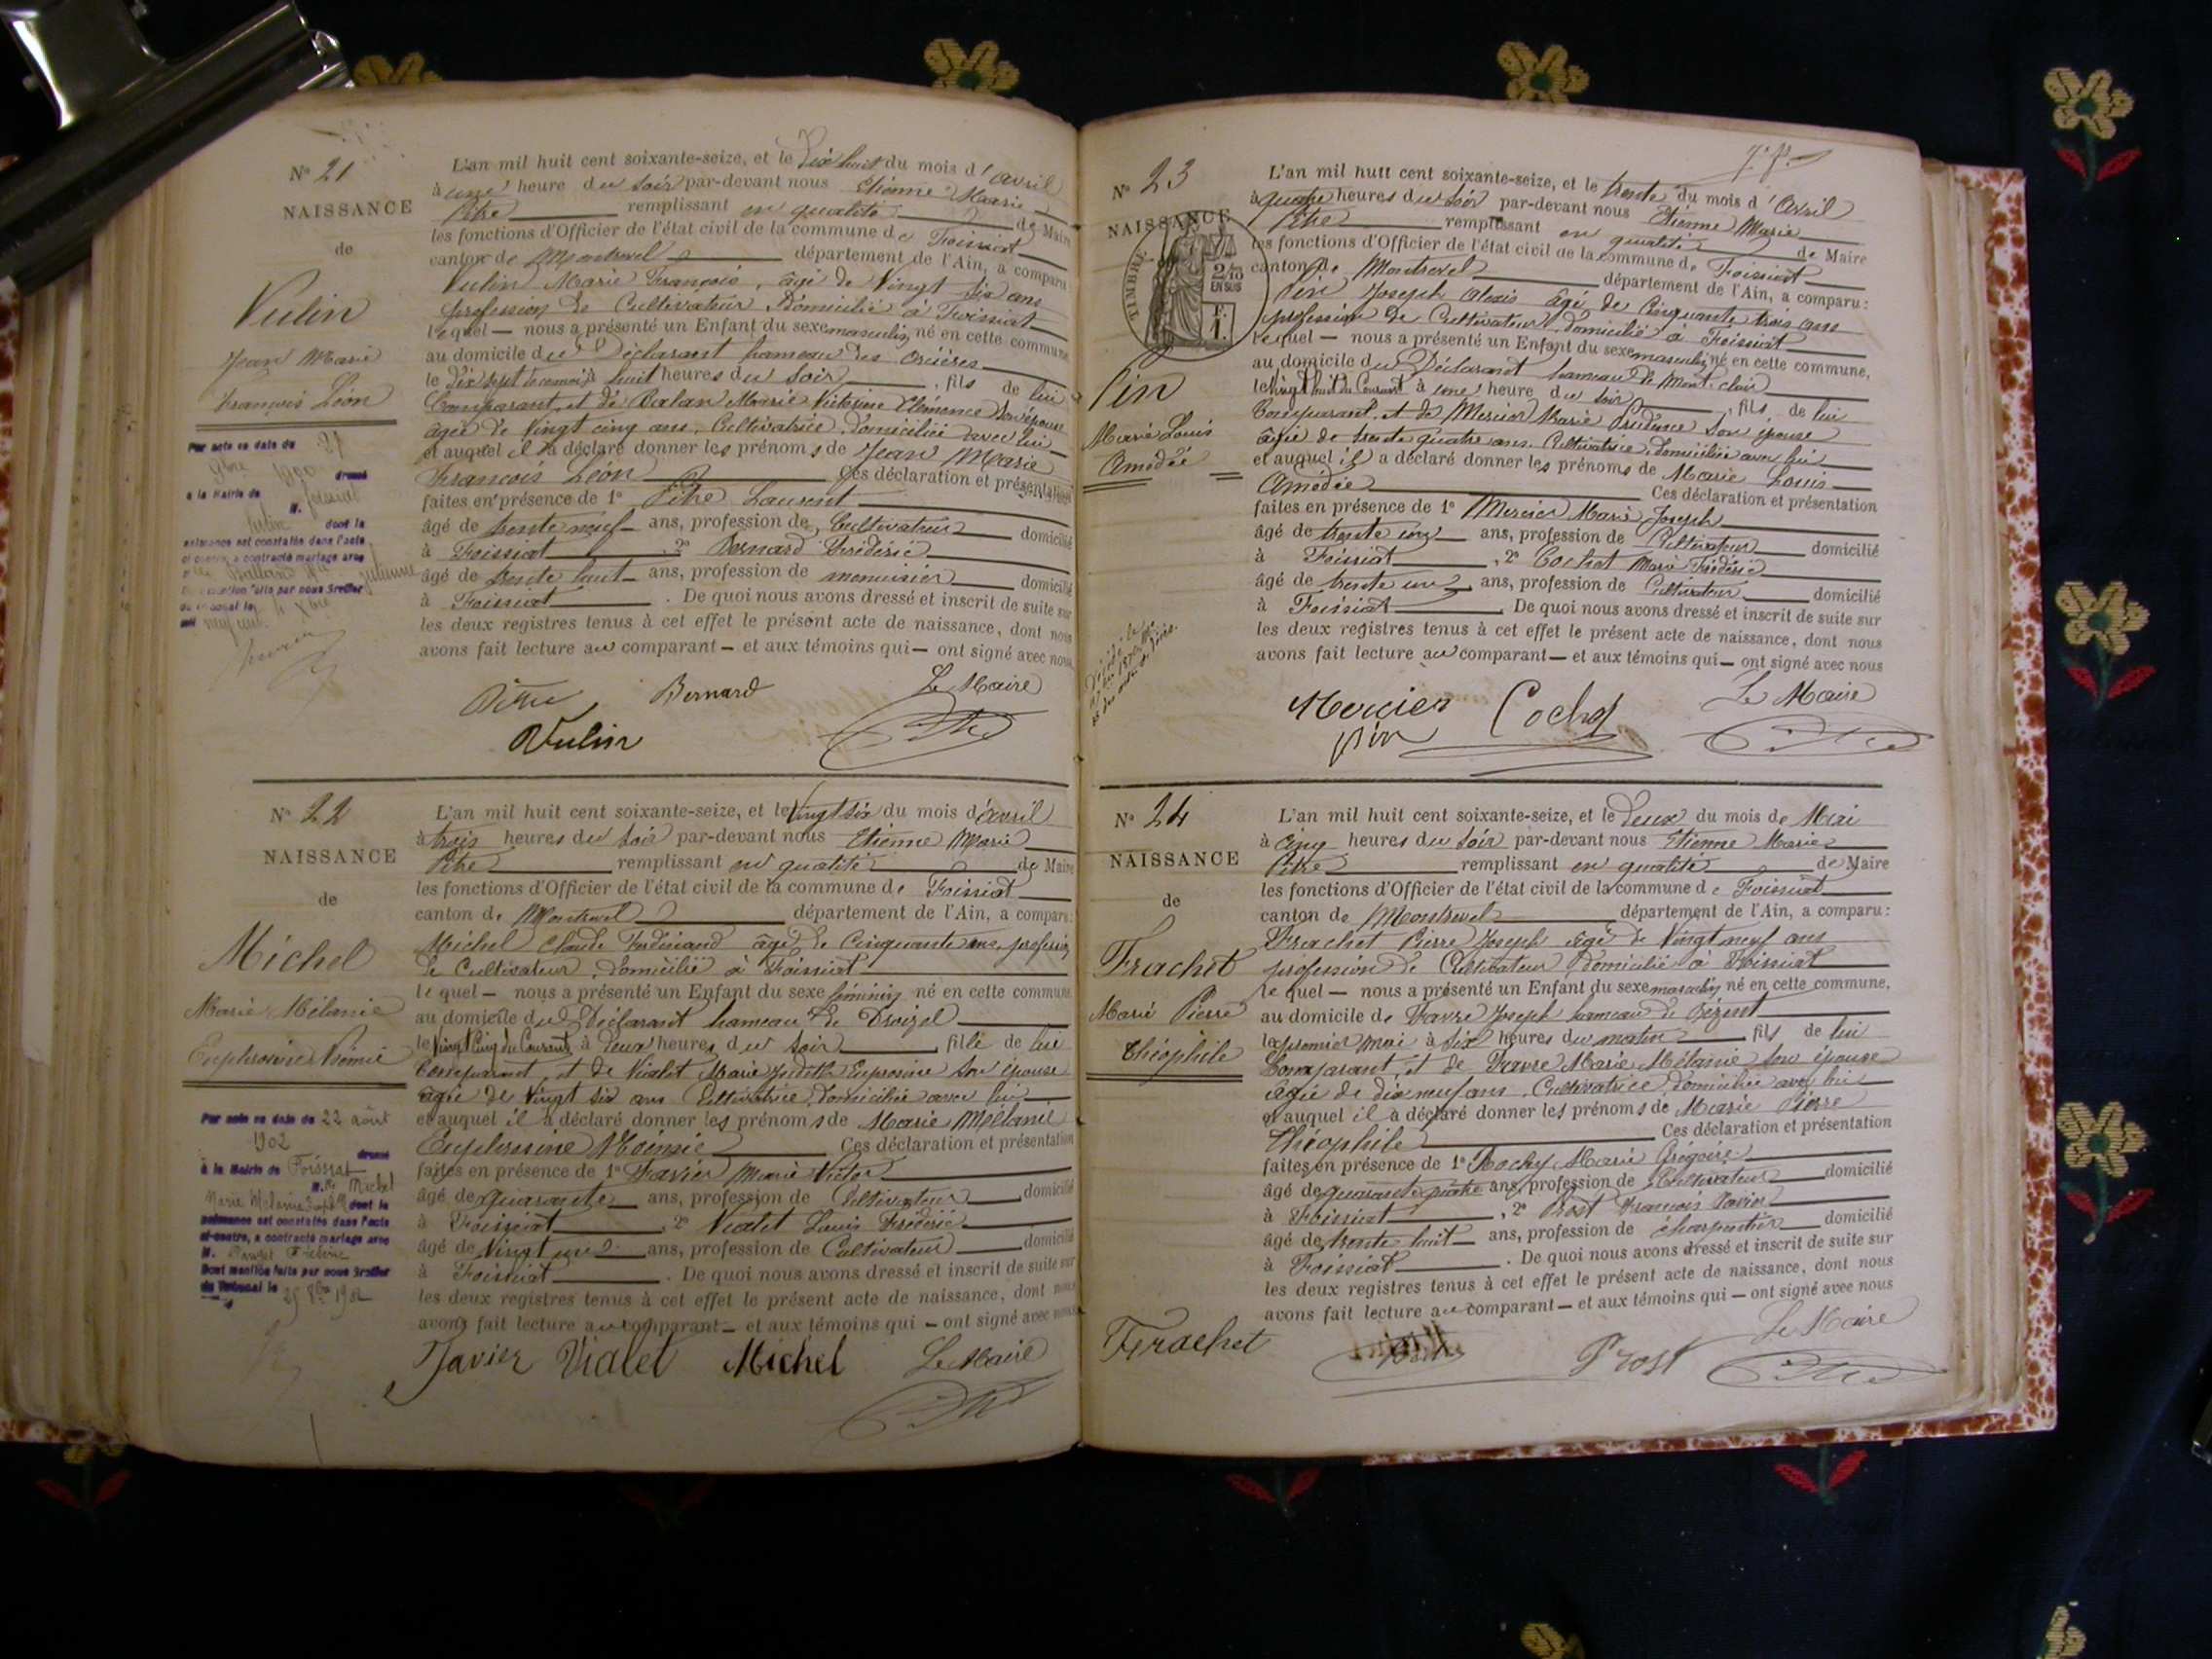 N° 21
NAISSANCE
de
Vulin
Jean Marie
François Léon
L'an mil huit cent soixante-seize, et le Dix huit du mois d'avril
à une heure du soir par-devant nous Etienne Marie
Pitre remplissant en qualité de Maire
les fonctions d'Officier de l'état civil de la commune de Foissiat
canton de Montrevel département de l'Ain, a comparu
Vulin Marie François, âgé de Vingt six ans
profession de Cultivateur, domicilié à Foissiat
lequel nous a présenté un Enfant du sexe masculin né en cette commune
au domicile du Déclarant hameau des
le dix sept à huit heures du soir, fils de lui
Comparant, et de Balan Marie Victorine Clémence son épouse
âgée de Vingt cinq ans, Cultivatrice, domiciliée avec lui
et auquel il a déclaré donner les prénoms de Jean Marie
François Léon Ces déclaration et présentation
faites en présence de 1° Pitre Laurent
âgé de trente neuf ans, profession de Cultivateur domicilié
à Foissiat, 2° Bernard Frédéric
âgé de trente huit ans, profession de menuisier domicilié
à Foissiat. De quoi nous avons dressé et inscrit de suite sur
les deux registres tenus à cet effet le présent acte de naissance, dont nous
avons fait lecture au comparant et aux témoins qui ont signé avec nous
Pitre Bernard Le Maire
Vulin Pitre
Par acte en date du 27
9bre 1900 dressé
à la Mairie de Foissiat
M. Vulin dont la
naissance est constatée dans l'acte
ci-contre, a contracté mariage avec
faite par nous Greffier
N° 22
NAISSANCE
de
Michel
Marie Mélanie
Euphrosine Noémie
L'an mil huit cent soixante-seize, et le Vingt six du mois d'avril
à trois heures du soir par-devant nous Etienne Marie
Pitre remplissant en qualité de Maire
les fonctions d'Officier de l'état civil de la commune de Foissiat
canton de Montrevel département de l'Ain, a comparu:
Michel Claude Ferdinand âgé de Cinquante ans, profession
de Cultivateur, domicilié à Foissiat
lequel nous a présenté un Enfant du sexe féminin né en cette commune
au domicile du Déclarant hameau de
le Vingt Cinq du Courant à deux heures du soir fille de lui
Comparant, et de Vialet Marie Judith Euprosine son épouse
âgée de Vingt six ans Cultivatrice, domiciliée avec lui
et auquel il a déclaré donner les prénoms de Marie Mélanie
Euphrosine Noémie Ces déclaration et présentation
faites en présence de 1° Favier Marie Victor
âgé de quarante ans, profession de Cultivateur domicilié
à Foissiat, 2° Vialet Louis Frédéric
âgé de Vingt un ans, profession de Cultivateur domicilié
à Foissiat. De quoi nous avons dressé et inscrit de suite sur
les deux registres tenus à cet effet le présent acte de naissance, dont nous
avons fait lecture au comparant et aux témoins qui ont signé avec nous
Favier Vialet Michel Le Maire
Pitre
Par acte en date du 22 août
1902 dressé
à la Mairie de Foissiat
M. Michel
Marie Mélanie dont la
naissance est constatée dans l'acte
ci-contre, a contracté mariage avec
M.
Dont mention faite par nous Greffier
du Tribunal le 25 8bre 1902
N° 23
NAISSANCE
TIMBRE
2/10
EN SUS
F.
1.
Pin
Marie Louis
Amédée
L'an mil huit cent soixante-seize, et le trente du mois d'Avril
à quatre heures du soir par-devant nous Etienne Marie
Pitre remplissant en qualité de Maire
les fonctions d'Officier de l'état civil de la commune de Foissiat
canton de Montrevel département de l'Ain, a comparu:
Pin Joseph Alexis âgé de Cinquante trois ans
profession de Cultivateur, domicilié à Foissiat
lequel nous a présenté un Enfant du sexe masculin né en cette commune,
au domicile du Déclarant hameau de Mont-clair
le Vingt huit du Courant à une heure du soir, fils de lui
Comparant, et de Mercier Marie Prudence son épouse
âgée de trente quatre ans, Cultivatrice, domiciliée avec lui
et auquel il a déclaré donner les prénoms de Marie Louis
Amédée Ces déclaration et présentation
faites en présence de 1° Mercier Marie Joseph
âgé de trente cinq ans, profession de Cultivateur domicilié
à Foissiat, 2° Cochet Marie Frédéric
âgé de trente un ans, profession de Cultivateur domicilié
à Foissiat. De quoi nous avons dressé et inscrit de suite sur
les deux registres tenus à cet effet le présent acte de naissance, dont nous
avons fait lecture au comparant et aux témoins qui ont signé avec nous
Mercier Cochet Le Maire
Pin Pitre
N° 24
NAISSANCE
de
Frachet
Marie Pierre
Théophile
L'an mil huit cent soixante-seize, et le deux du mois de Mai
à cinq heures du soir par-devant nous Etienne Marie
Pitre remplissant en qualité de Maire
les fonctions d'Officier de l'état civil de la commune de Foissiat
canton de Montrevel département de l'Ain, a comparu:
Frachet Pierre Joseph âgé de Vingt neuf ans
profession de Cultivateur domicilié à Foissiat
lequel nous a présenté un Enfant du sexe masculin né en cette commune,
au domicile de Favre Joseph hameau de
le premier mai à six heures du matin fils de lui
Comparant, et de Favre Marie Mélanie son épouse
âgée de dix neuf ans, Cultivatrice, domiciliée avec lui
et auquel il a déclaré donner les prénoms de Marie Pierre
Théophile Ces déclaration et présentation
faites en présence de 1° Rochy Marie Grégoire
âgé de quarante quatre ans, profession de Cultivateur domicilié
à Foissiat, 2° Prost François Xavier
âgé de trente huit ans, profession de charpentier domicilié
à Foissiat. De quoi nous avons dressé et inscrit de suite sur
les deux registres tenus à cet effet le présent acte de naissance, dont nous
avons fait lecture au comparant et aux témoins qui ont signé avec nous
Frachet Prost Le Maire
Pitre